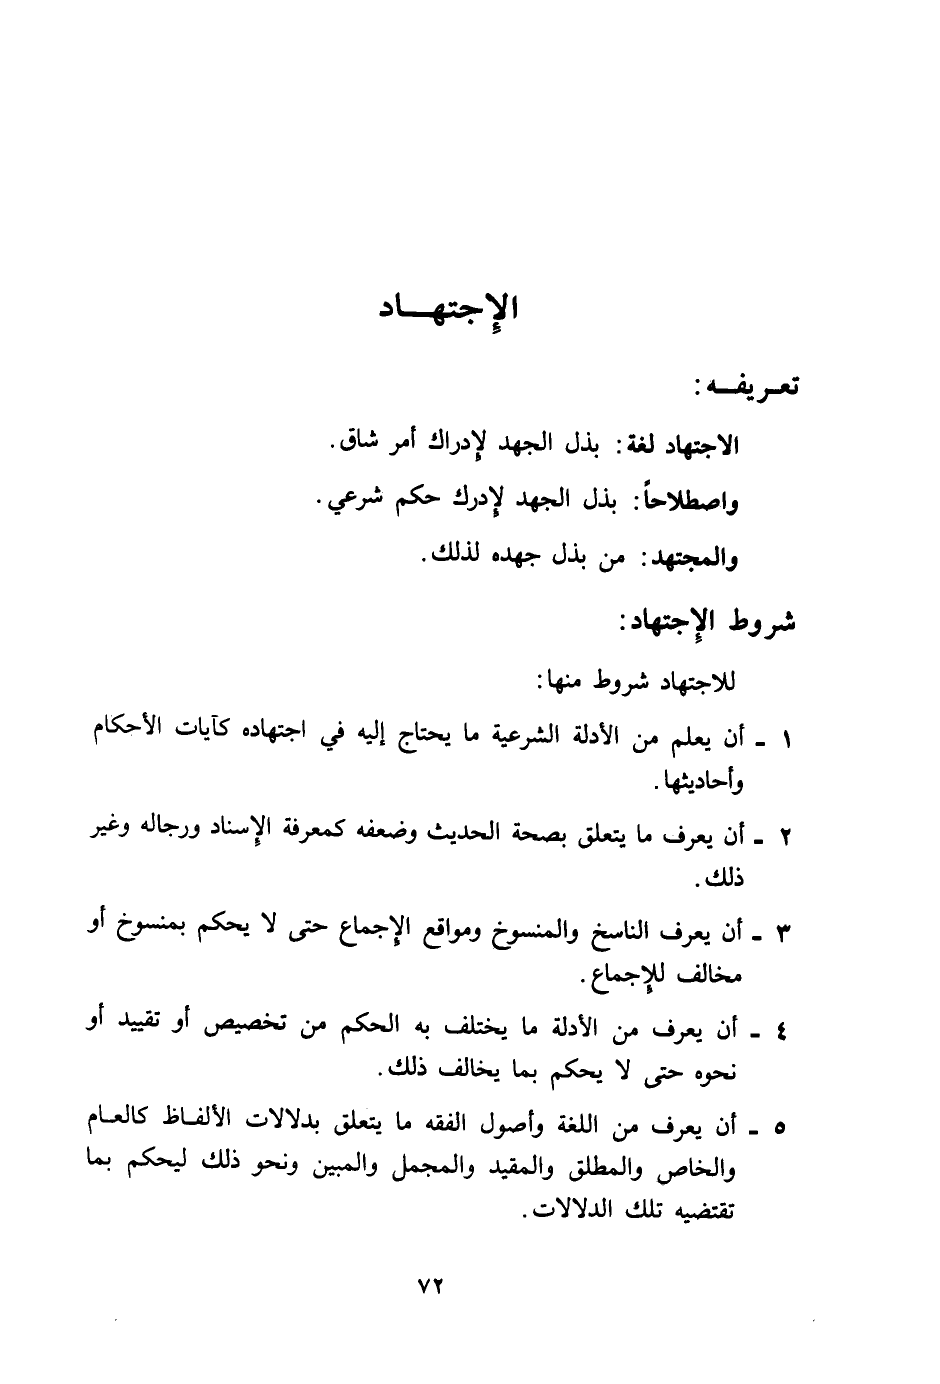 الإجتهـــاد
تعـريفـــه :
الاجتهاد لغة: بذل الجهد لإدراك أمر شاق.
واصطلاحاً: بذل الجهد لإدرك حكم شرعي.
والمجتهد: من بذل جهده لذلك.
شروط الإجتهاد:
للاجتهاد شروط منها:
١ - أن يعلم من الأدلة الشرعية ما يحتاج إليه في اجتهاده كآيات الأحكام
وأحاديثها.
٢ - أن يعرف ما يتعلق بصحة الحديث وضعفه كمعرفة الإسناد ورجاله وغير
ذلك.
٣ - أن يعرف الناسخ والمنسوخ ومواقع الإجماع حتى لا يحكم بمنسوخ أو
مخالف للإجماع.
٤ - أن يعرف من الأدلة ما يختلف به الحكم من تخصيص أو تقييد أو
نحوه حتى لا يحكم بما يخالف ذلك.
٥ - أن يعرف من اللغة وأصول الفقه ما يتعلق بدلالات الألفـاظ كالعـام
والخاص والمطلق والمقيد والمجمل والمبين ونحو ذلك ليحكم بما
تقتضيه تلك الدلالات.
٧٢